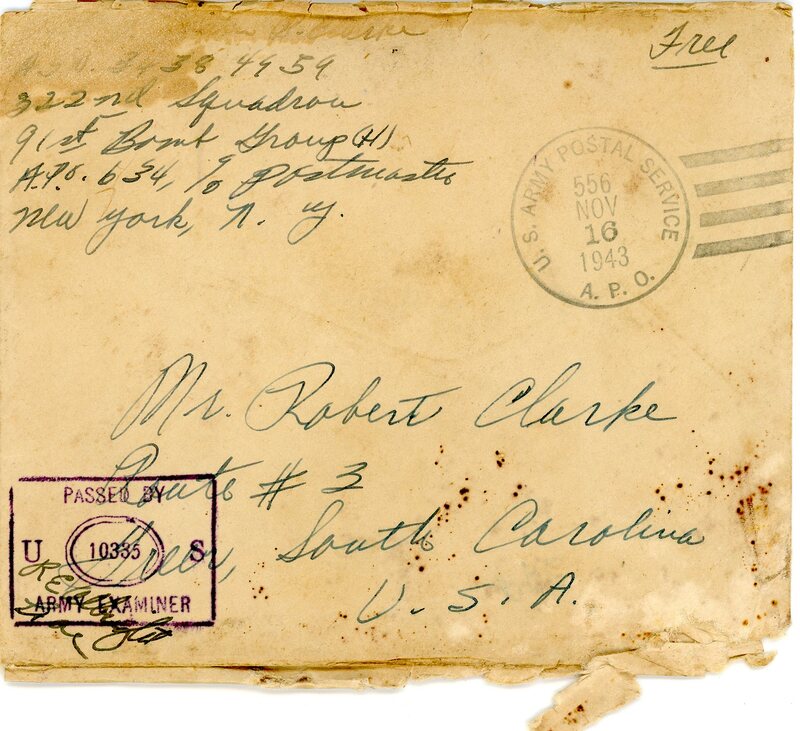 S. Clarke
A.S.N. 3458 4959
322nd Squadron
91st Bomb Group (H)
A.P.O. 634, c/o Postmaster
New York, N. Y.
Free
U. S. ARMY POSTAL SERVICE
556
NOV
16
1943
A. P. O.
Mr. Robert Clarke
Route # 3
Greer, South Carolina
U. S. A.
PASSED BY
U 10335 S
ARMY EXAMINER